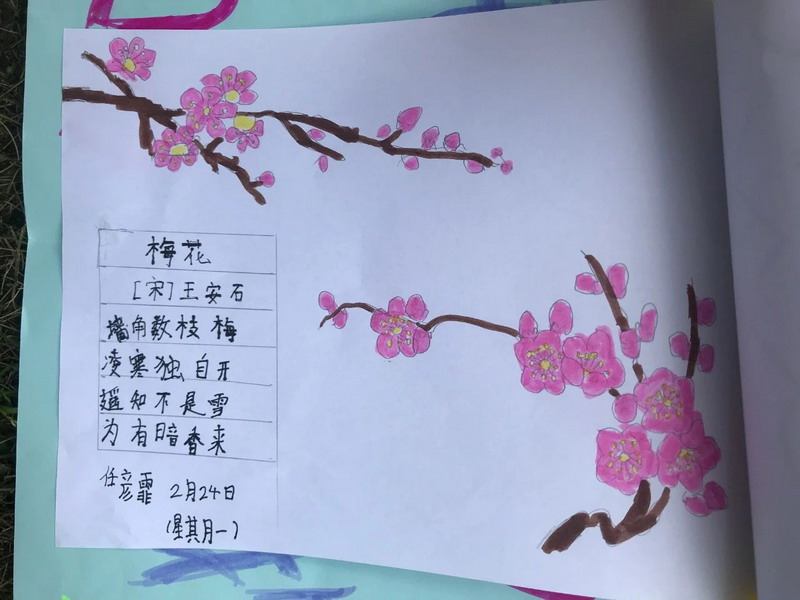 梅花
[宋]王安石
墙角数枝梅
凌寒独自开
遥知不是雪
为有暗香来
任彦霏 2月24日
(星其月一)